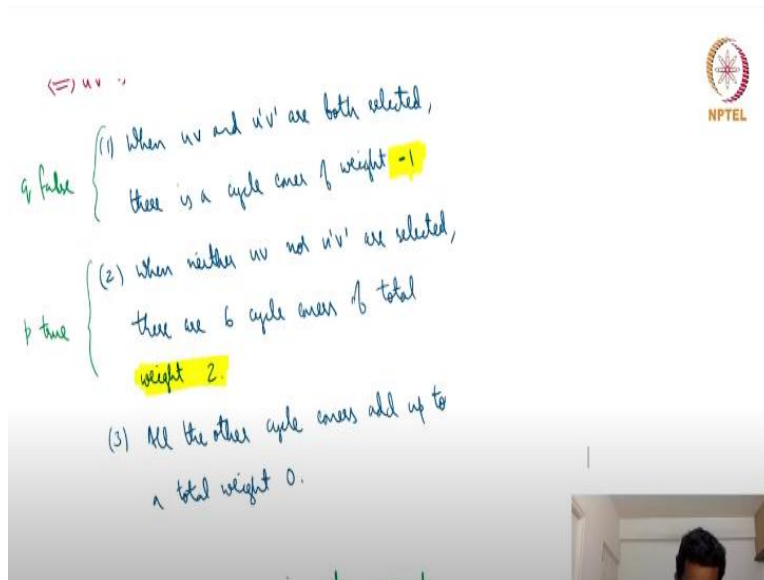 (⇒) uv
NPTEL
(1) When uv and u'v' are both selected,
q false
there is a cycle cover of weight -1
(2) When neither uv not u'v' are selected,
p true
there are 6 cycle covers of total
weight 2.
(3) All the other cycle covers add up to
a total weight 0.